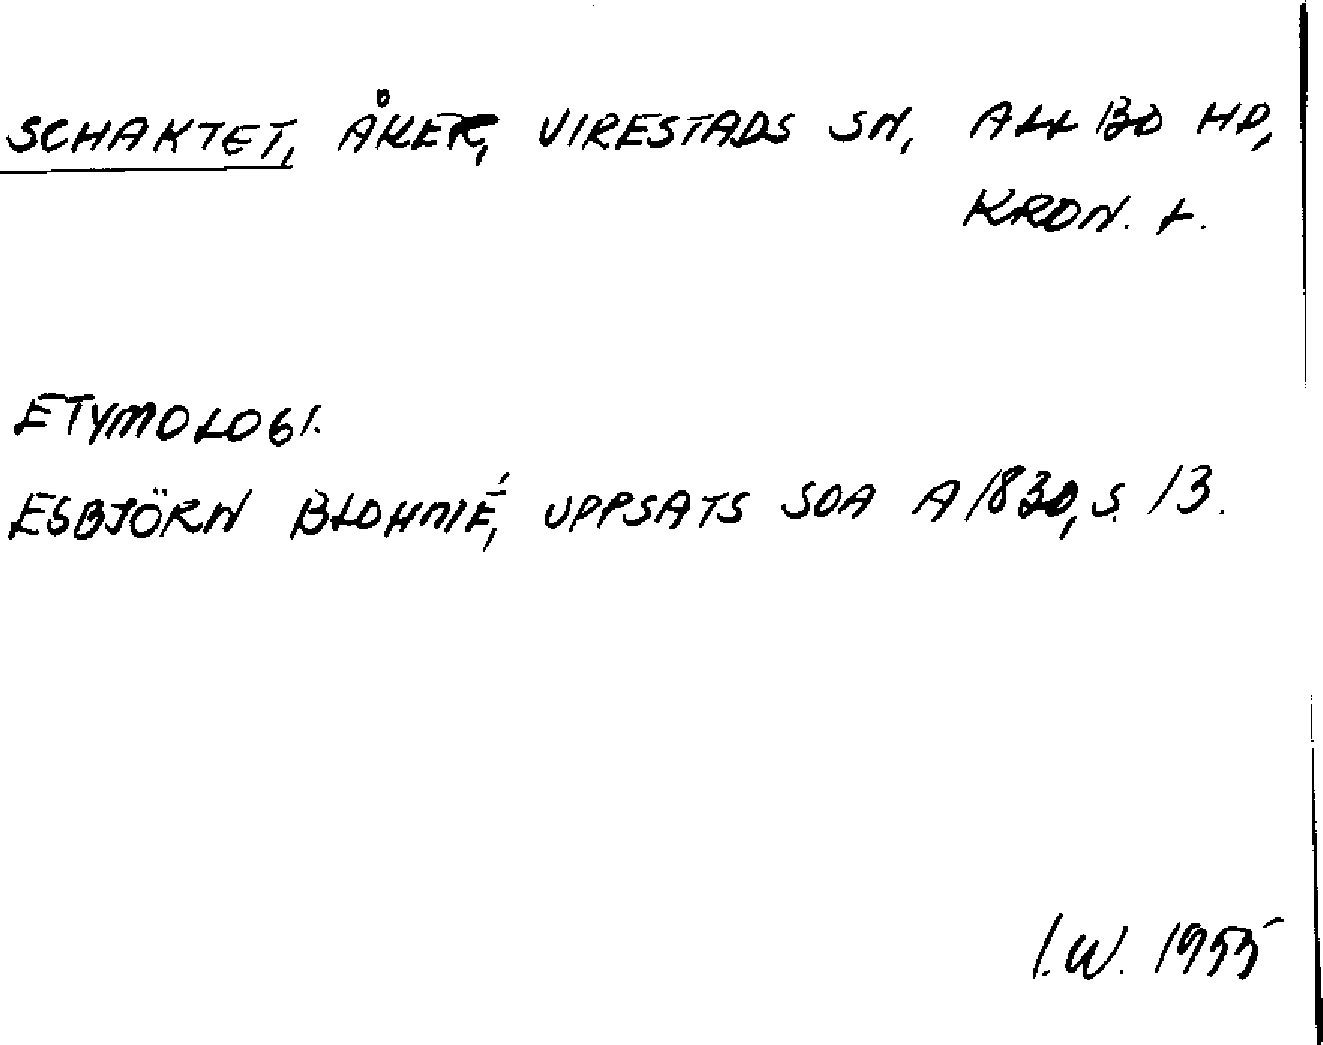 SCHAKTET, ÅKER, VIRESTADS SN, ALLBO HD,
KRON. L.
ETYMOLOGI.
ESBJÖRN BLOHMÉ, UPPSATS SOA A 1830, S. 13.
I.W. 1955